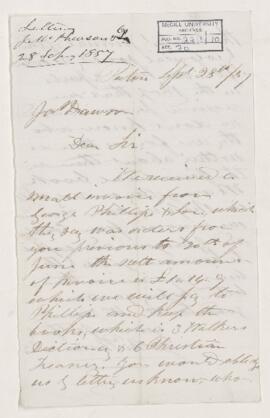 Letter
J. McPherson & Co
28 Sep. 1857
McGILL UNIVERSITY
ARCHIVES
ACC. NO.
Pictou Sept. 28th /57
Jas Dawson
Dear Sir
We received a
small invoice from
George Phillips & Son which
they say was orders from
you previous to 20th of
June the amount
of invoice is
which we will pay to
Phillips and keep the
books, which is 3 Walkers
Dictionary & 6 Christian
Treasury. You would oblige
us by letting us know, who